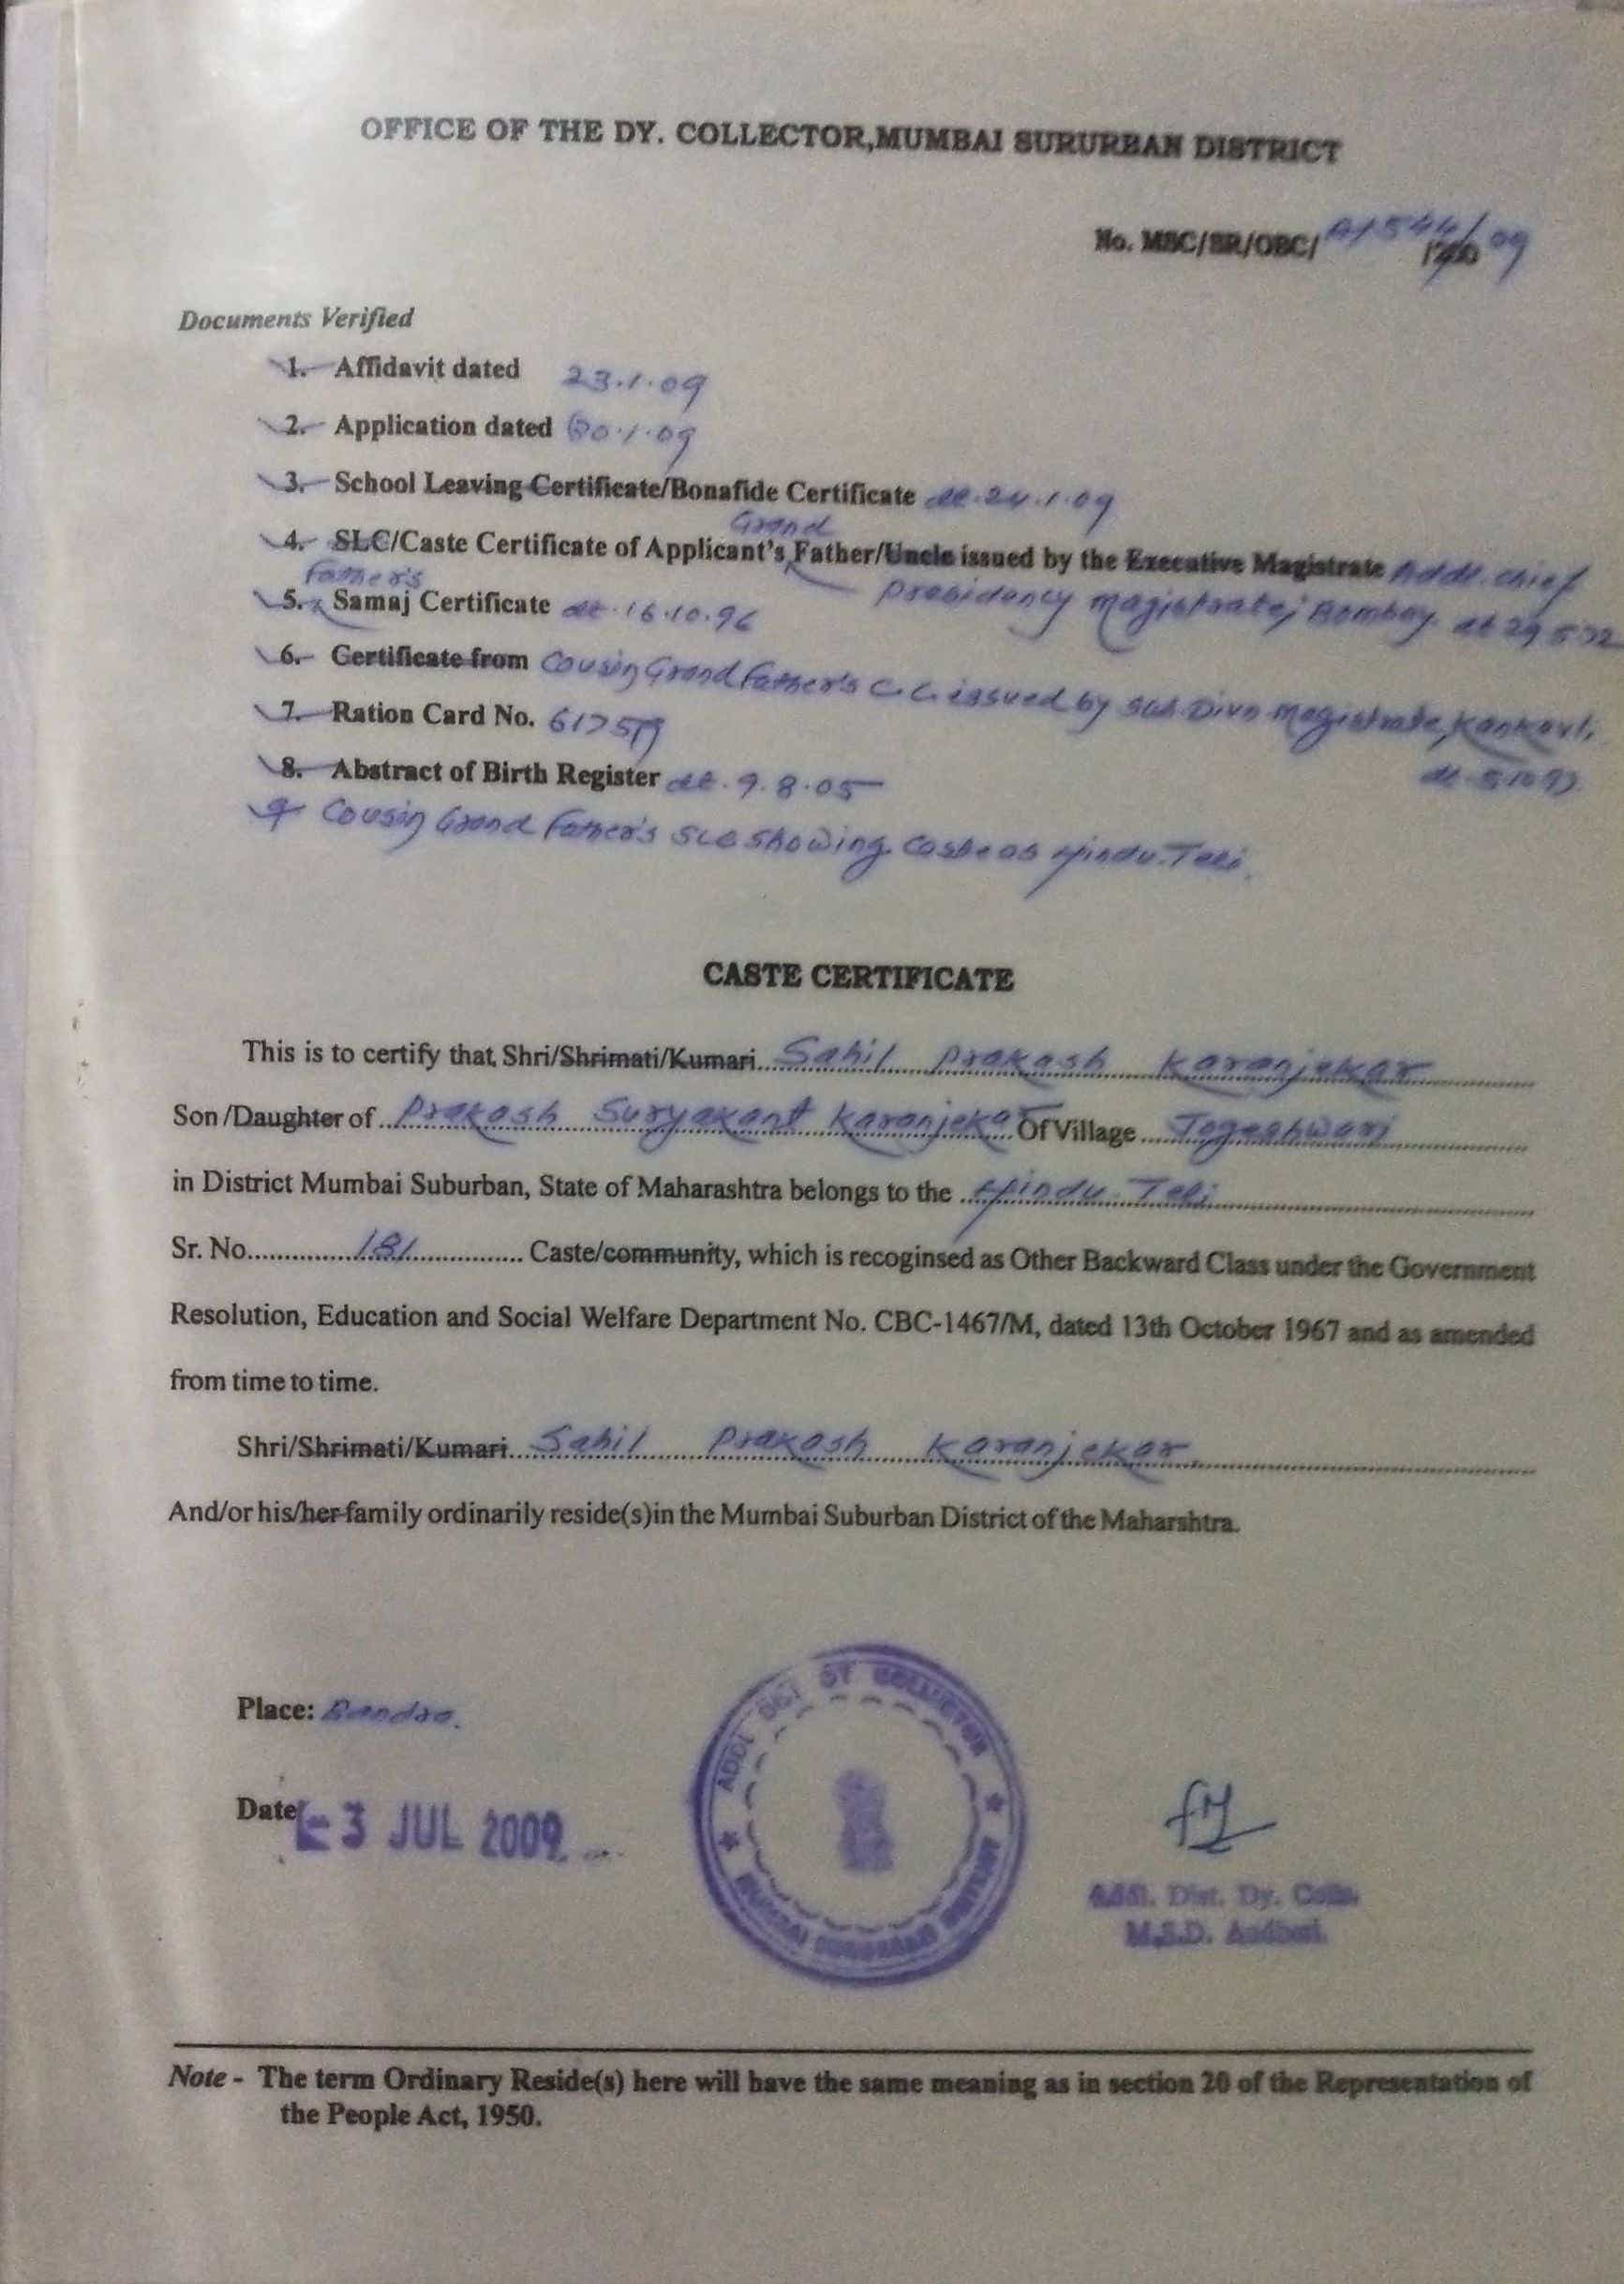 OFFICE OF THE DY. COLLECTOR,MUMBAI SURURBAN DISTRICT
No. MSC/SR/OBC/ A/544/09 /200
Documents Verified
1. Affidavit dated 23.1.09
2. Application dated 30.1.09
3. School Leaving Certificate/Bonafide Certificate dt. 24.1.09
Grand
4. SLC/Caste Certificate of Applicant's Father/Uncle issued by the Executive Magistrate Addl. Chief
Father's
Presidency Magistrate, Bombay dt 29.5.72
5. Samaj Certificate dt. 16.10.96
6. Certificate from Cousin Grand Father's C.C. issued by Sub. Divn Magistrate, Kankavli,
7. Ration Card No.
8. Abstract of Birth Register dt. 9.8.05
9 Cousin Grand Father's SLC showing Caste as Hindu-Teli.
CASTE CERTIFICATE
This is to certify that, Shri/Shrimati/Kumari Sahil Prakash Karanjekar
Son/Daughter of Prakash Suryakant Karanjekar Of Village Jogeshwari
in District Mumbai Suburban, State of Maharashtra belongs to the Hindu-Teli
Sr. No. 181 Caste/community, which is recoginsed as Other Backward Class under the Government
Resolution, Education and Social Welfare Department No. CBC-1467/M, dated 13th October 1967 and as amended
from time to time.
Shri/Shrimati/Kumari Sahil Prakash Karanjekar
And/or his/her family ordinarily reside(s)in the Mumbai Suburban District of the Maharshtra.
Place: Bandra.
Date - 3 JUL 2009
ADDL DIST DY COLLECTOR
MUMBAI SUBURBAN DISTRICT
Addl. Dist. Dy. Collr.
M.S.D. Andheri.
Note - The term Ordinary Reside(s) here will have the same meaning as in section 20 of the Representation of
the People Act, 1950.